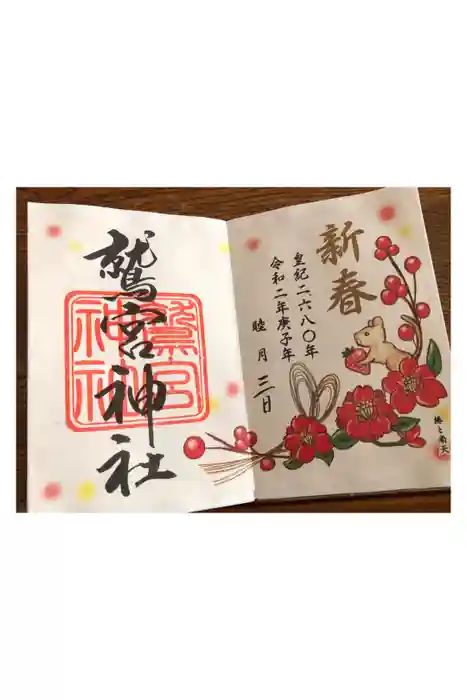 鷲宮神社
鷲宮
神社
新春
皇紀二六八〇年
令和二年庚子年
睦月三日
椿と南天